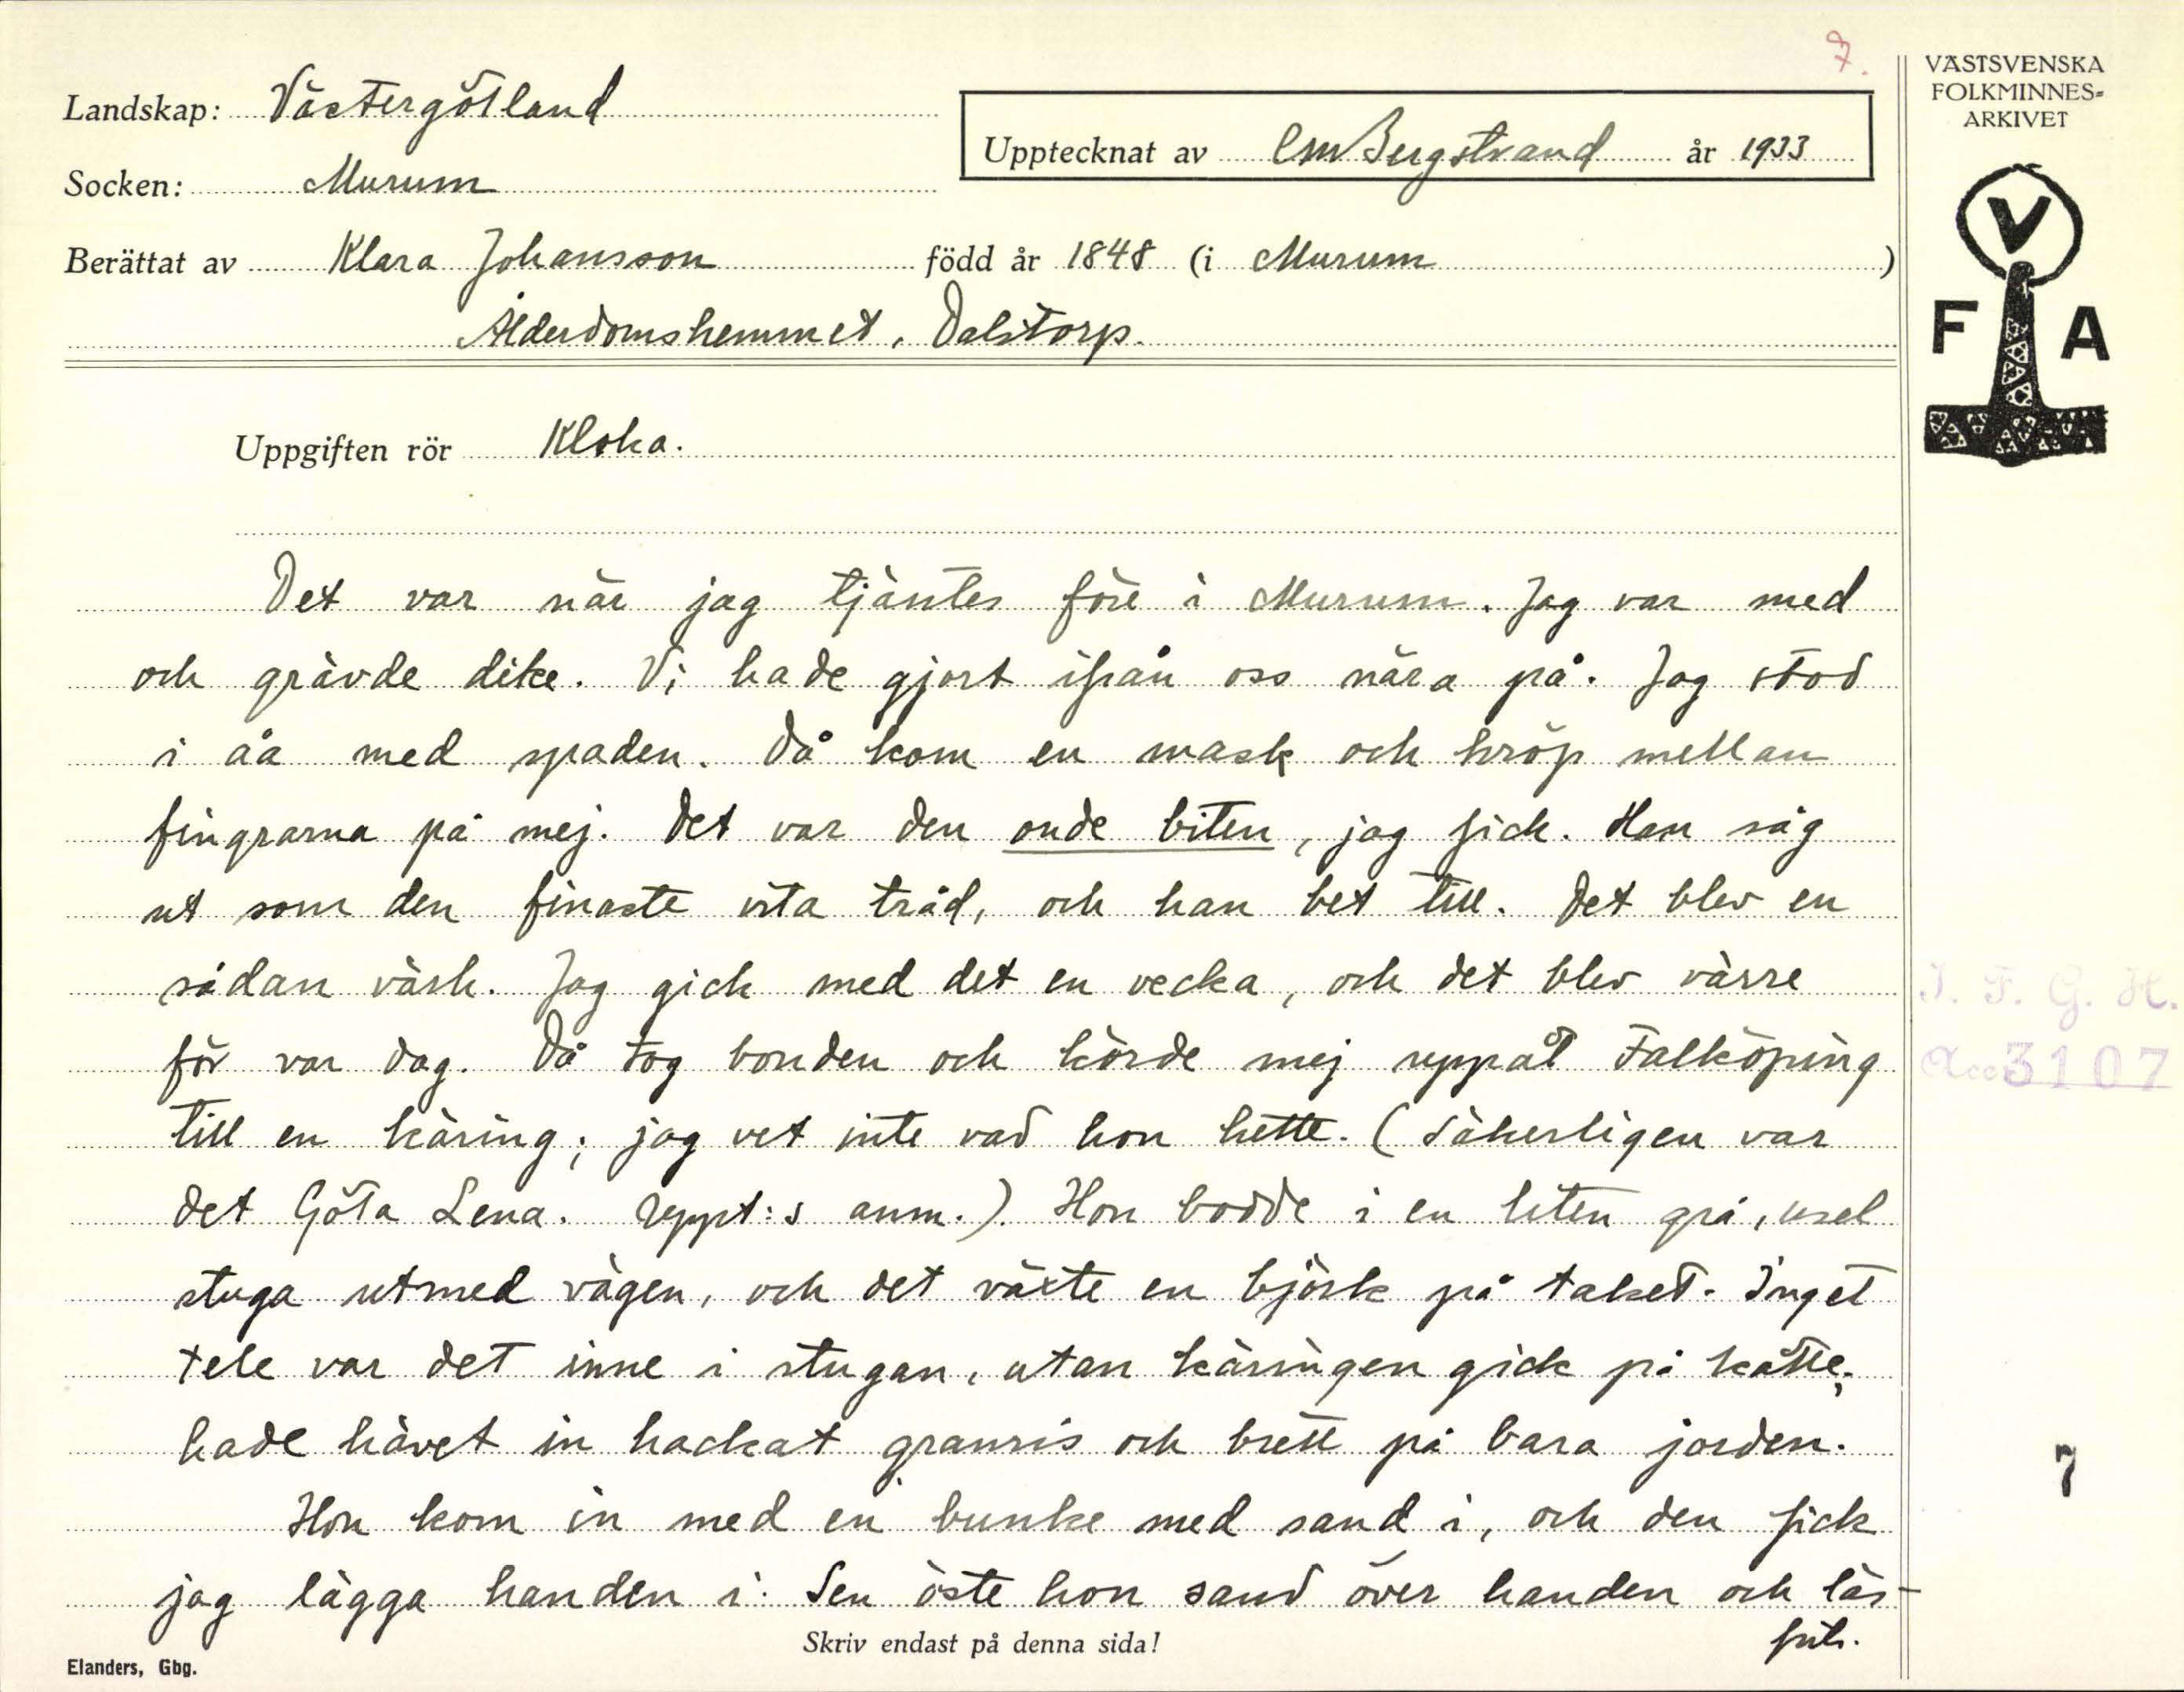 7.
Landskap: Västergötland
Socken: Murum
Upptecknat av CM Bergstrand år 1933
Berättat av Klara Johansson född år 1848 (i Murum )
Ålderdomshemmet, Dalstorp.
Uppgiften rör Kloka.
Det var när jag tjäntes före i Murum. Jag var med
och grävde dike. Vi hade gjort ifrån oss nära på. Jag stod
i åa med spaden. Då kom en mask och kröp mellan
fingrarna på mej. Det var den onde biten, jag fick. Han såg
ut som den finaste vita tråd, och han bet till. Det blev en
sådan värk. Jag gick med det en vecka, och det blev värre
för var dag. Då tog bonden och körde mej uppåt Falköping
till en käring; jag vet inte vad hon hette. (Säkerligen var
det Göta Lena. Uppt:s anm.). Hon bodde i en liten grå, usel
stuga utmed vägen, och det växte en björk på taket. Inget
tele var det inne i stugan, utan käringen gick på kätte;
hade hävet in hackat granris och brett på bara jorden.
Hon kom in med en bunke med sand i, och den fick
jag lägga handen i. Sen öste hon sand över handen och läs-
Skriv endast på denna sida!
forts.
Elanders, Gbg.
VÄSTSVENSKA
FOLKMINNES-
ARKIVET
V
F A
I. F. G. H.
Acc 3107
7